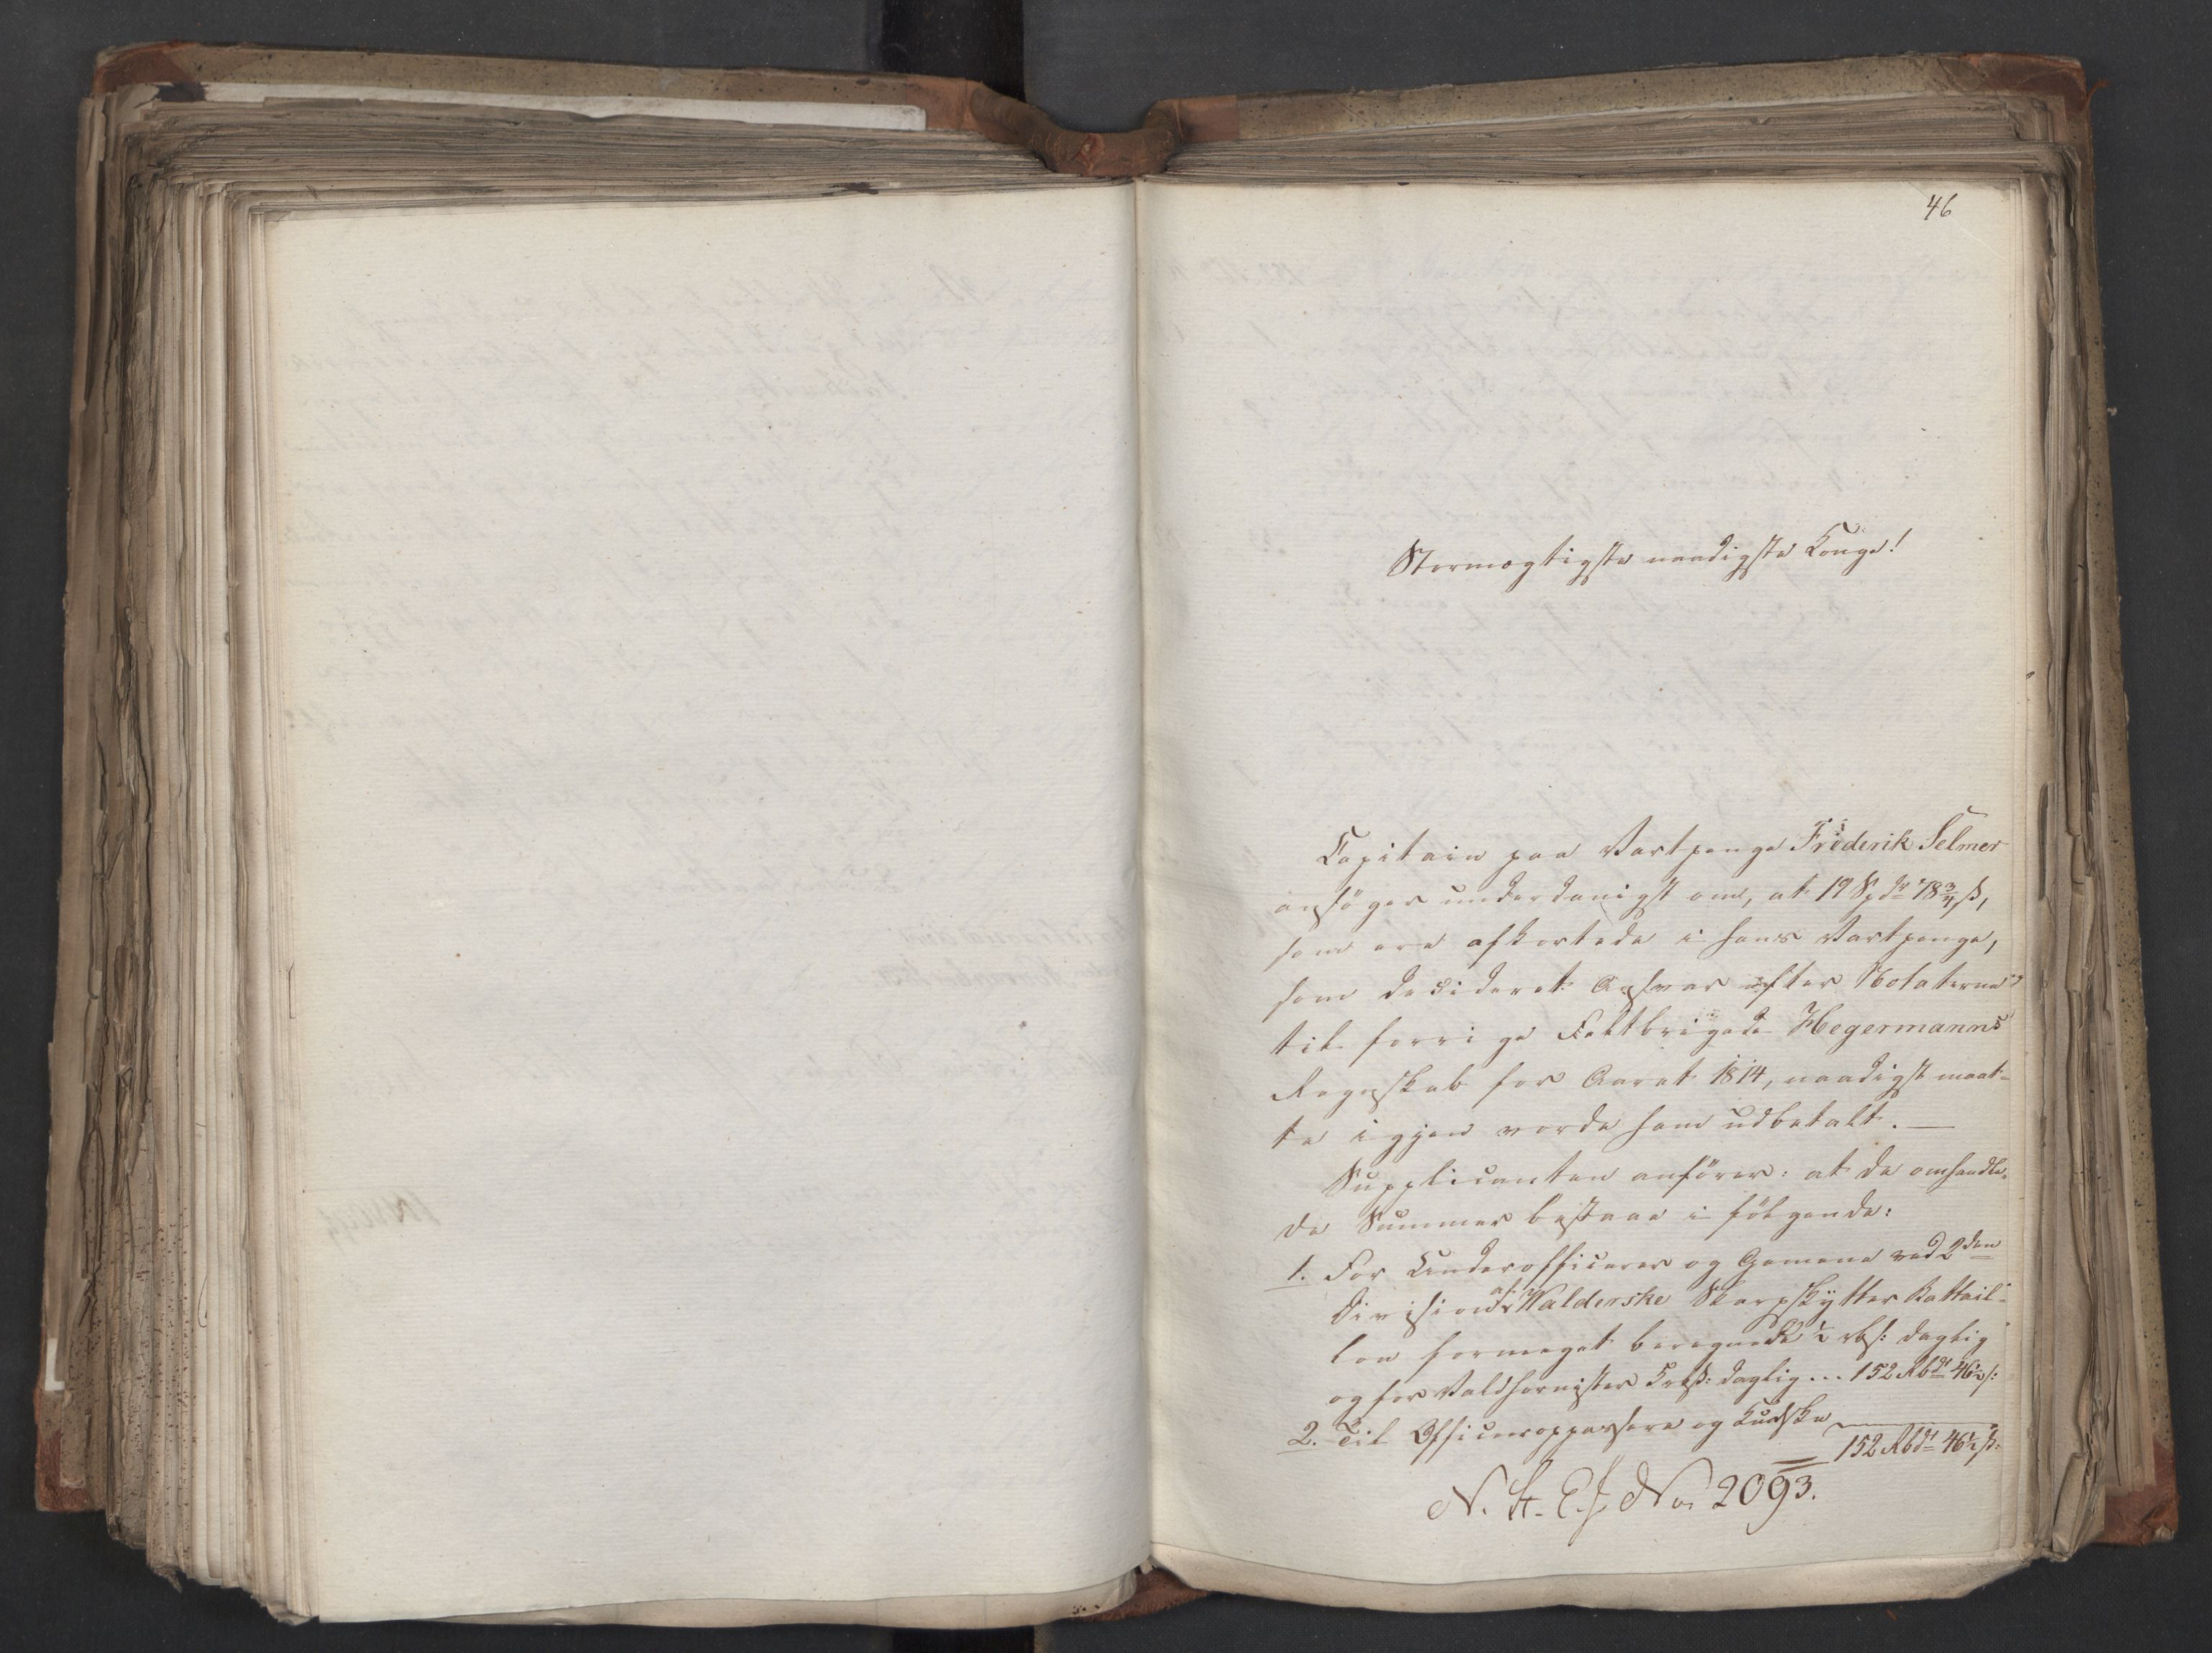 46
Stormægtigste naadigste Konge!
Capitain paa Vartpenge Friderik Selmer
ansøger underdanigst om, at 19 Spdr 78¾ s,
som ere afkortede i hans Vartpenge,
som decideret Ansvar efter Notaterne
til forrige Feltbrigade Hegermanns
Regnskab for Aaret 1814, naadigst maat-
te igjen vorde ham udbetalt. —
Supplicanten anfører: at de omhandle-
de Summer bestaae i følgende:
1. For Underofficerer og Gemene ved 2den
Division af Walderske Skarpskytter Battail-
lon formeget beregnede ½ rbs: daglig
og for Valdhornister rbs: daglig ... 152 Rbdr 46½ s:
2. Til Officeersoppassere og Kudske
152 Rbdr 46½ s:
No 2093.